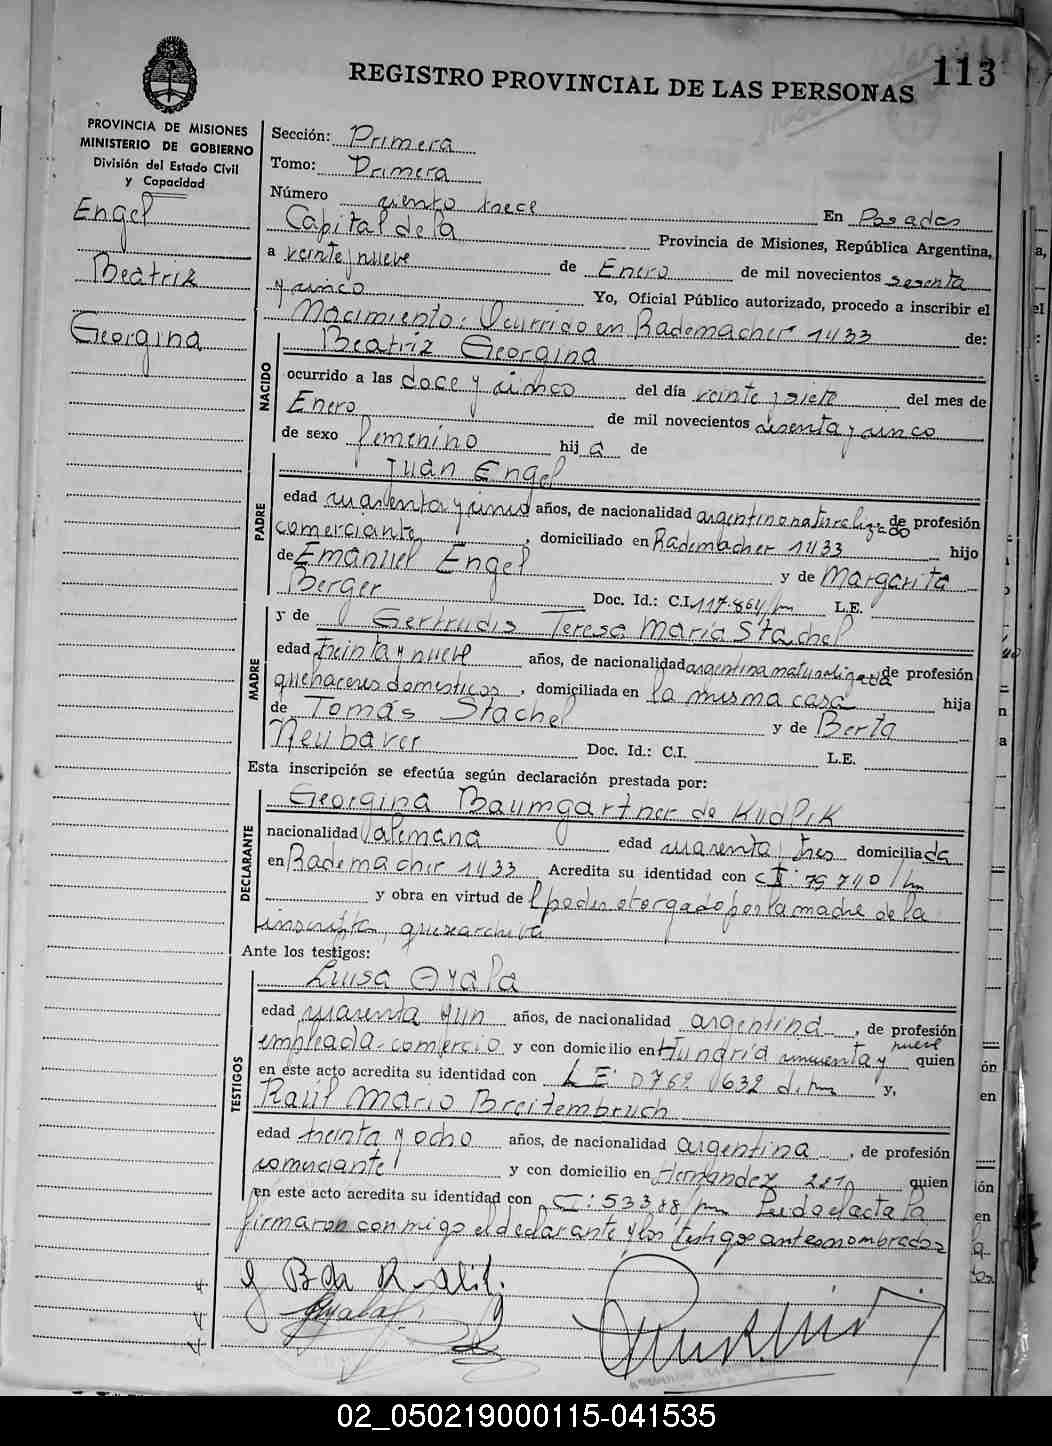 REGISTRO PROVINCIAL DE LAS PERSONAS
113
PROVINCIA DE MISIONES
MINISTERIO DE GOBIERNO
División del Estado Civil
y Capacidad
Engel
Beatriz
Georgina
Sección: Primera
Tomo: Primera
Número ciento trece En Posadas
Capital de la Provincia de Misiones, República Argentina,
a veinte y nueve de Enero de mil novecientos sesenta
y cinco Yo, Oficial Público autorizado, procedo a inscribir el
Nacimiento. Ocurrido en Rademacher 1433 de:
NACIDO
Beatriz Georgina
ocurrido a las doce y cinco del día veinte y siete del mes de
Enero de mil novecientos sesenta y cinco
de sexo femenino hij a de
PADRE
Juan Engel
edad cuarenta y cinco años, de nacionalidad argentino naturalizado de profesión
comerciante, domiciliado en Rademacher 1433 hijo
de Emanuel Engel y de Margarita
Berger Doc. Id.: C.I. 117.864/m L.E.
MADRE
y de Gertrudis Teresa Maria Stachel
edad treinta y nueve años, de nacionalidad argentina naturalizada de profesión
quehaceres domesticos, domiciliada en la misma casa hija
de Tomás Stachel y de Berta
Neubaver Doc. Id.: C.I. L.E.
Esta inscripción se efectúa según declaración prestada por:
DECLARANTE
Georgina Baumgartner de
nacionalidad alemana edad cuarenta y tres domiciliada
en Rademacher 1433 Acredita su identidad con C I: 79740/m
y obra en virtud de l poder otorgado por la madre de la
inscripta, que se archiva
Ante los testigos:
TESTIGOS
Luisa Ayala
edad cuarenta y un años, de nacionalidad argentina, de profesión
empleada-comercio y con domicilio en Hungría cincuenta y nueve quien
en este acto acredita su identidad con L E: 0769 632 y,
Raúl Mario Breitembruch
edad treinta y ocho años, de nacionalidad argentina, de profesión
comerciante y con domicilio en Hernandez quien
en este acto acredita su identidad con C I: 53388/m Leido el acta la
firmaron conmigo el declarante y los testigos antes nombrados
02_050219000115-041535